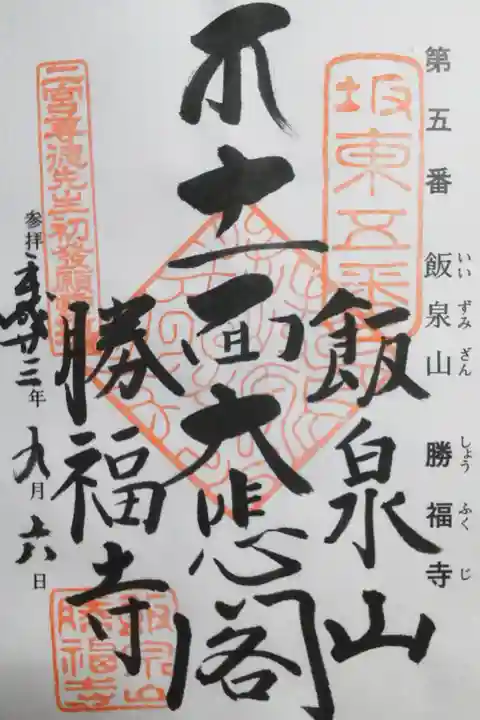 第五番 飯泉山 勝福寺
いいずみざん しょうふくじ
坂東五番
飯泉山
十一面大悲閣
勝福寺
二宮尊徳先生初發願
参拝 平成廿三年九月十六日
飯泉山
勝福寺